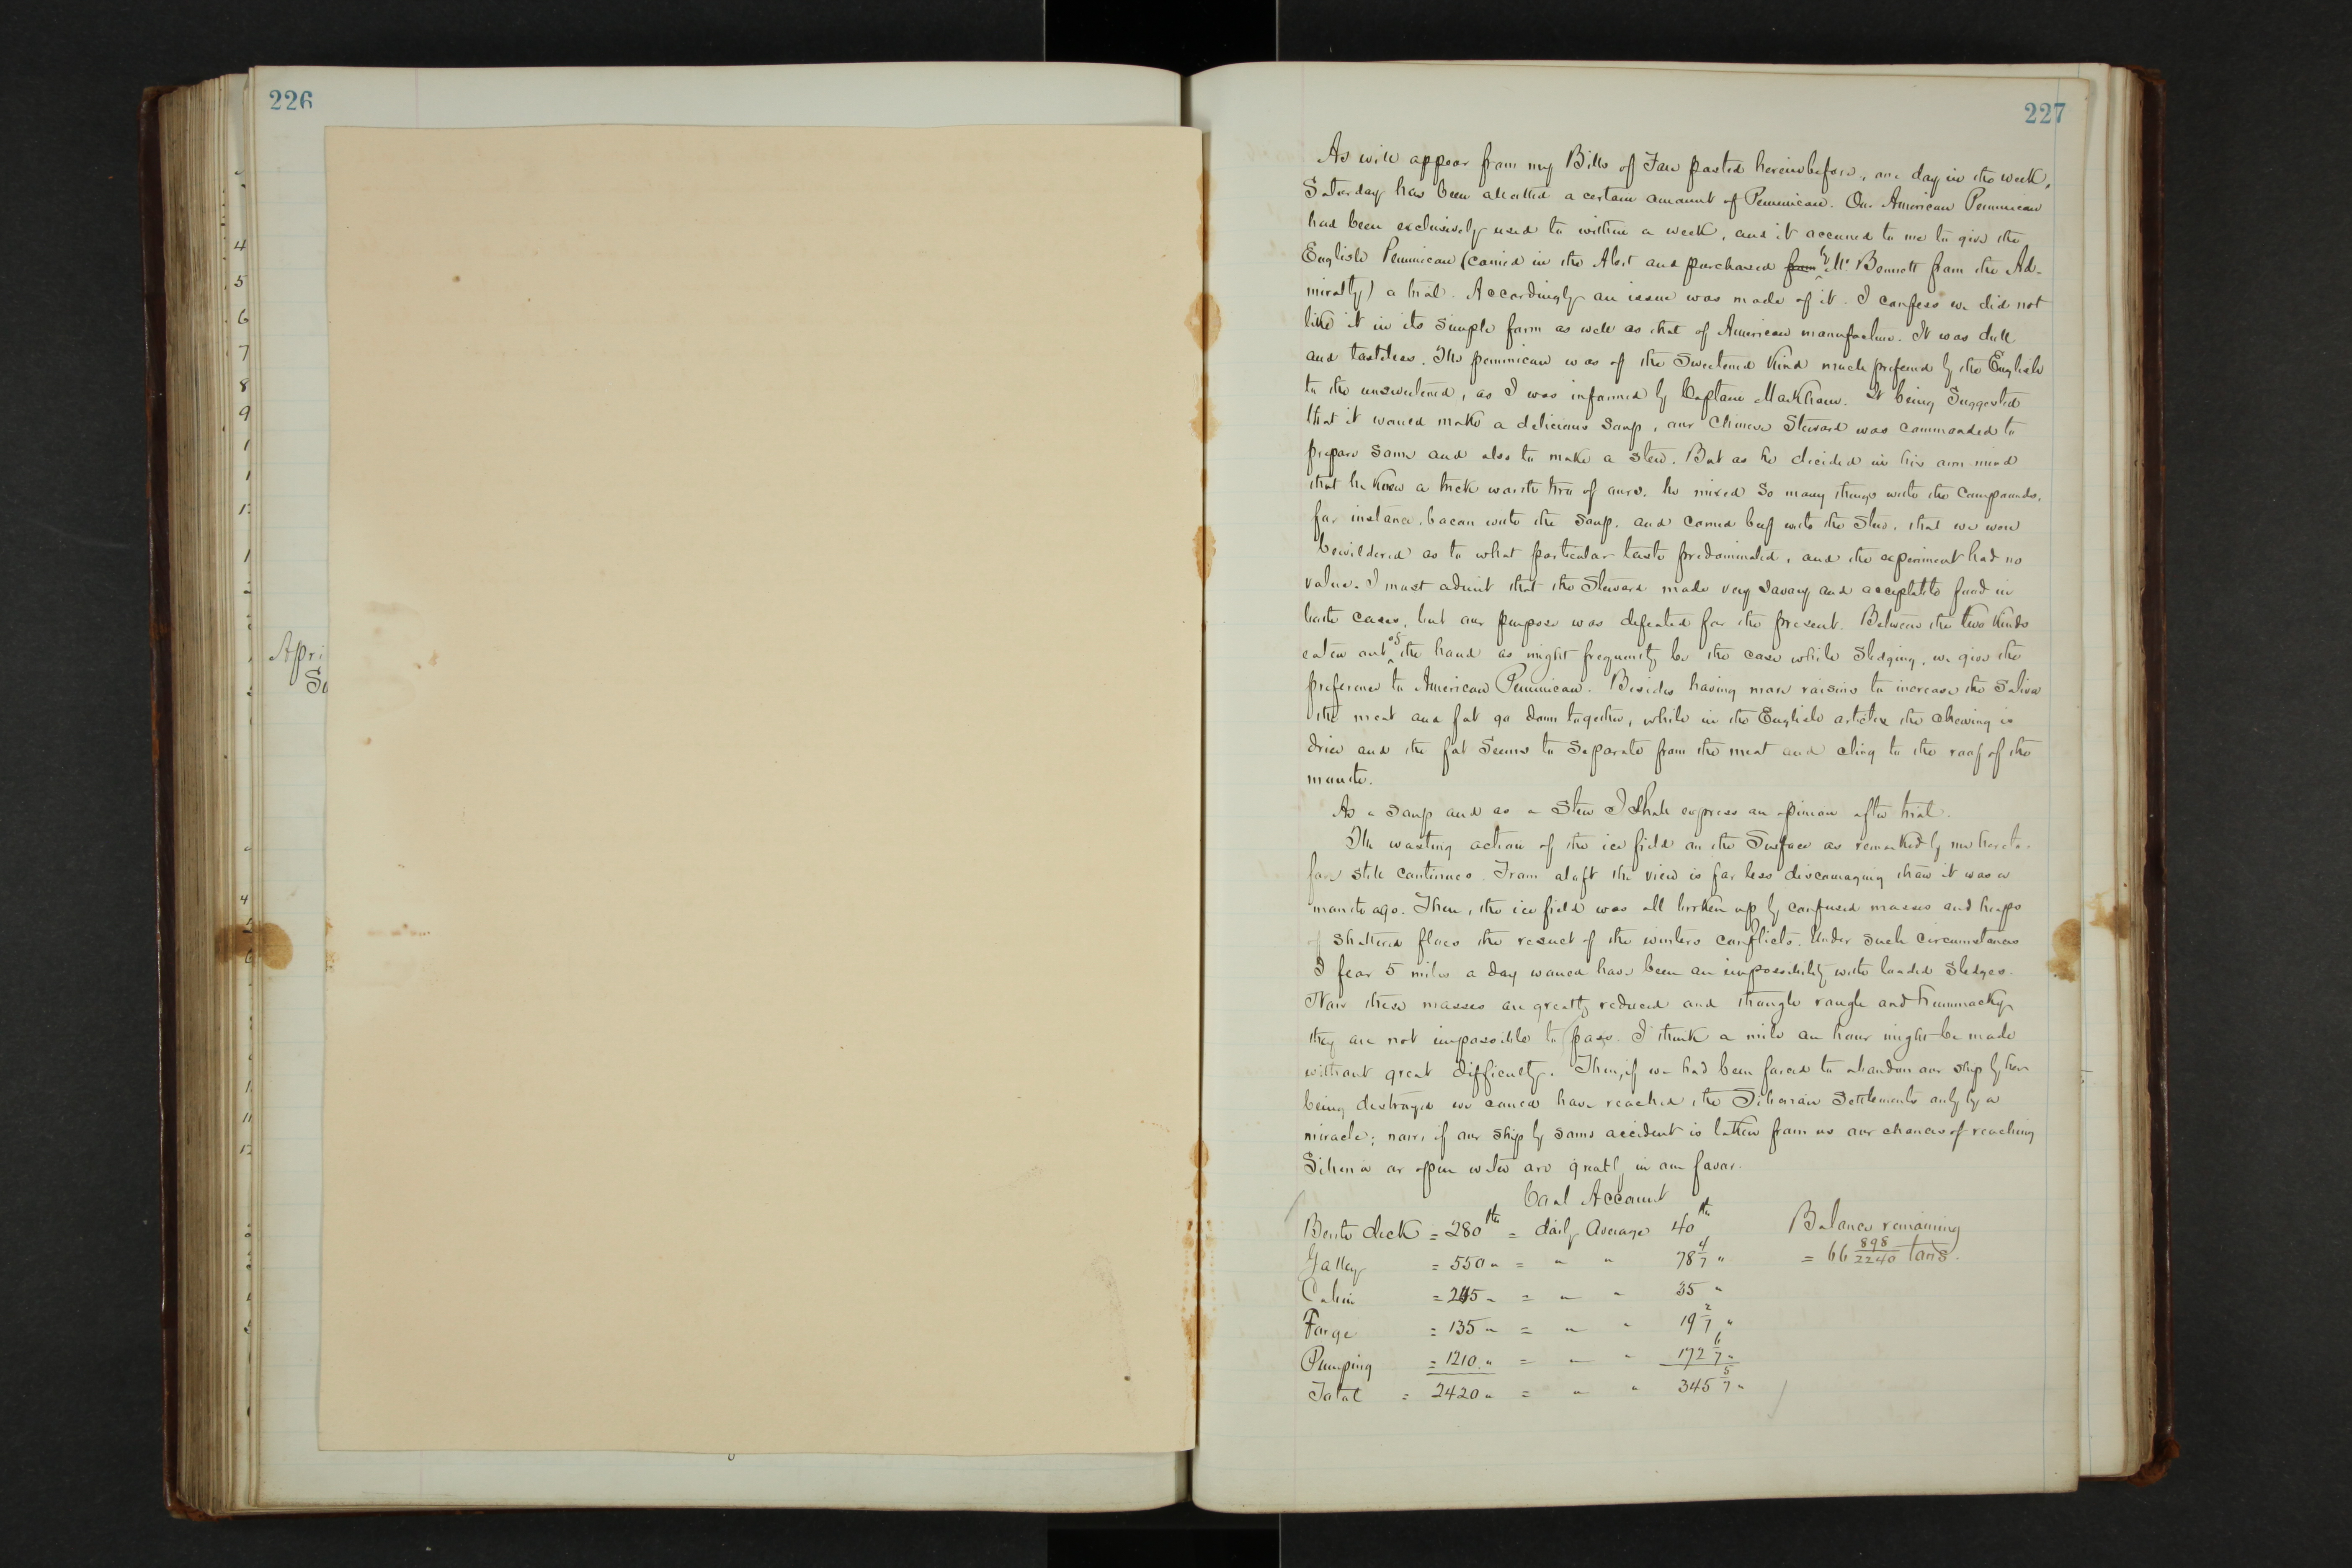 226
4
5
6
7
8
9
Apri
227
As will appear from my Bills of Fare pasted hereinbefore, one day in the week,
Saturday has been allotted a certain amount of Pemmican. Our American Pemmican
had been exclusively used to within a week, and it occurred to me to give the
English Pemmican (carried in the Alert and purchased from by Mr Bennett from the Ad-
miralty) a trial. Accordingly an issue was made of it. I confess we did not
like it in its simple form as well as that of American manufacture. It was dull
and tasteless. This pemmican was of the Sweetened Kind much preferred by the English
to the unsweetened, as I was informed by Captain Markham. It being Suggested
that it would make a delicious soup, our Chinese Steward was commanded to
prepare some and also to make a stew. But as he decided in his own mind
that he knew a trick worth two of ours, he mixed so many things with the compounds,
for instance, bacon with the soup, and corned beef with the stew, that we were
bewildered as to what particular taste predominated, and the experiment had no
value. I must admit that the Steward made very savory and acceptable food in
both cases, but our purpose was defeated for the present. Between the two kinds
eaten out of the hand as might frequently be the case while Sledging, we give the
preference to American Pemmican. Besides having more raisins to increase the Saliva
the meat and fat go down together, while in the English article the chewing is
drier and the fat seems to separate from the meat and cling to the roof of the
mouth.
As a soup and as a Stew I shall express an opinion after trial.
The wasting action of the ice field on the Surface as remarked by me hereto-
fore still continues. From aloft the view is far less discouraging than it was a
month ago. Then, the ice field was all broken up by confused masses and heaps
of shattered floes the result of the winters conflicts. Under such circumstances
I fear 5 miles a day would have been an impossibility with loaded sledges.
Now these masses are greatly reduced and though rough and hummocky
they are not impossible to pass. I think a mile an hour might be made
without great difficulty. Then, if we had been forced to abandon our ship by her
being destroyed we could have reached the Siberian Settlements only by a
miracle; now, if our ship by some accident is taken from us our chances of reaching
Siberia or open water are greatly in our favor.
Coal Account
Berth deck = 280 lbs = daily average 40 lbs Balance remaining
Galley = 550 " = " " 78 4/7 " = 66 898/2240 tons.
Cabin = 245 " = " " 35 "
Forge = 135 " = " " 19 2/7 "
Pumping = 1210 " = " " 172 6/7 "
Total = 2420 " = " " 345 5/7 "